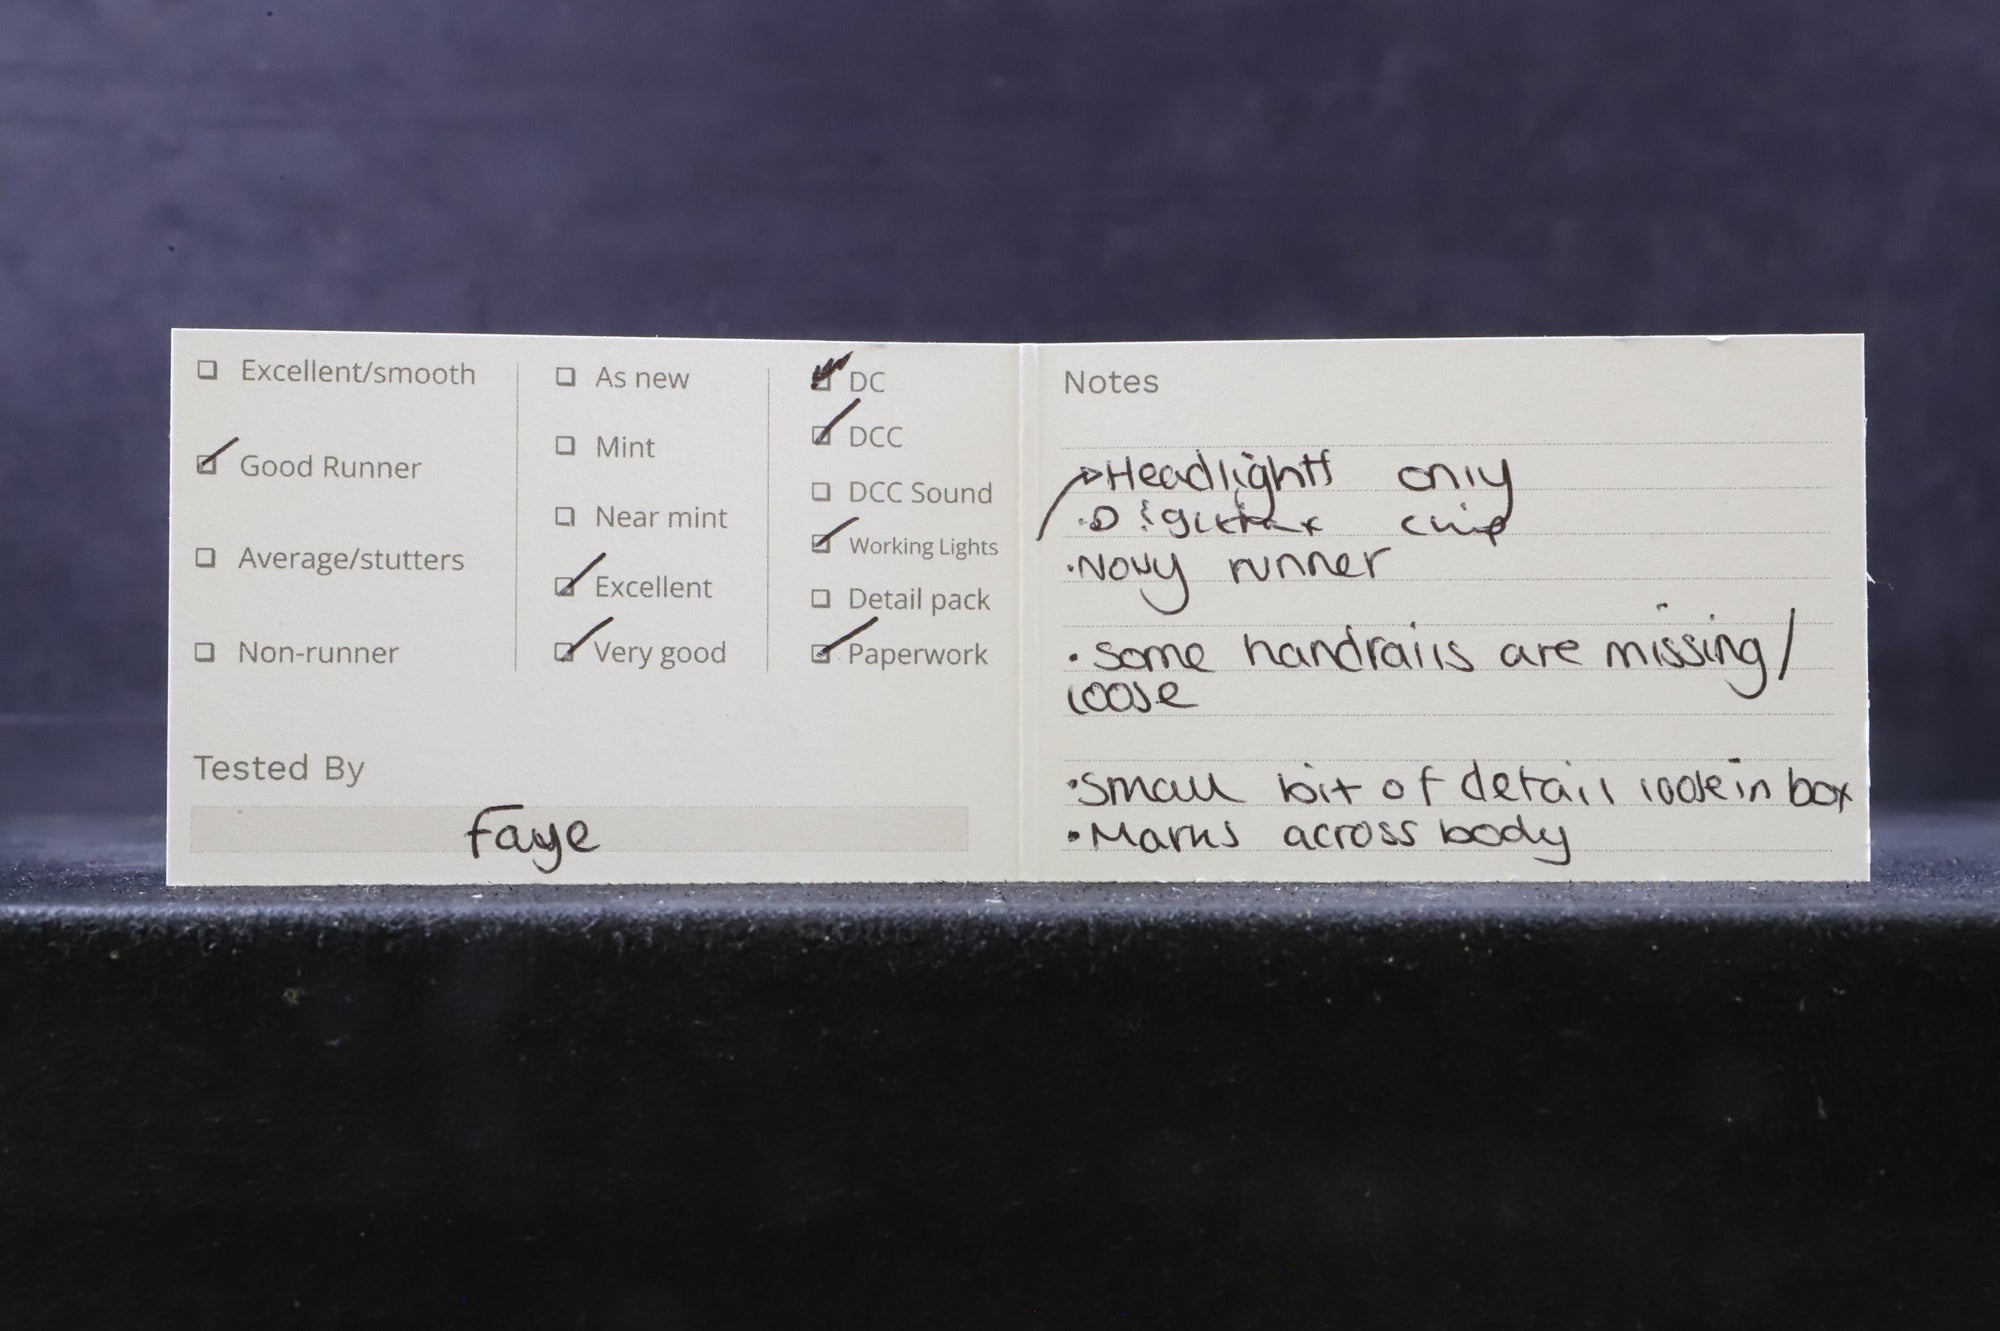 Excellent/smooth
Good Runner
Average/stutters
Non-runner
As new
Mint
Near mint
Excellent
Very good
DC
DCC
DCC Sound
Working Lights
Detail pack
Paperwork
Tested By
Faye
Notes
Headlights only
chip
runner
• Some handrails are missing/
loose
• Small bit of detail loose in box
• Marks across body